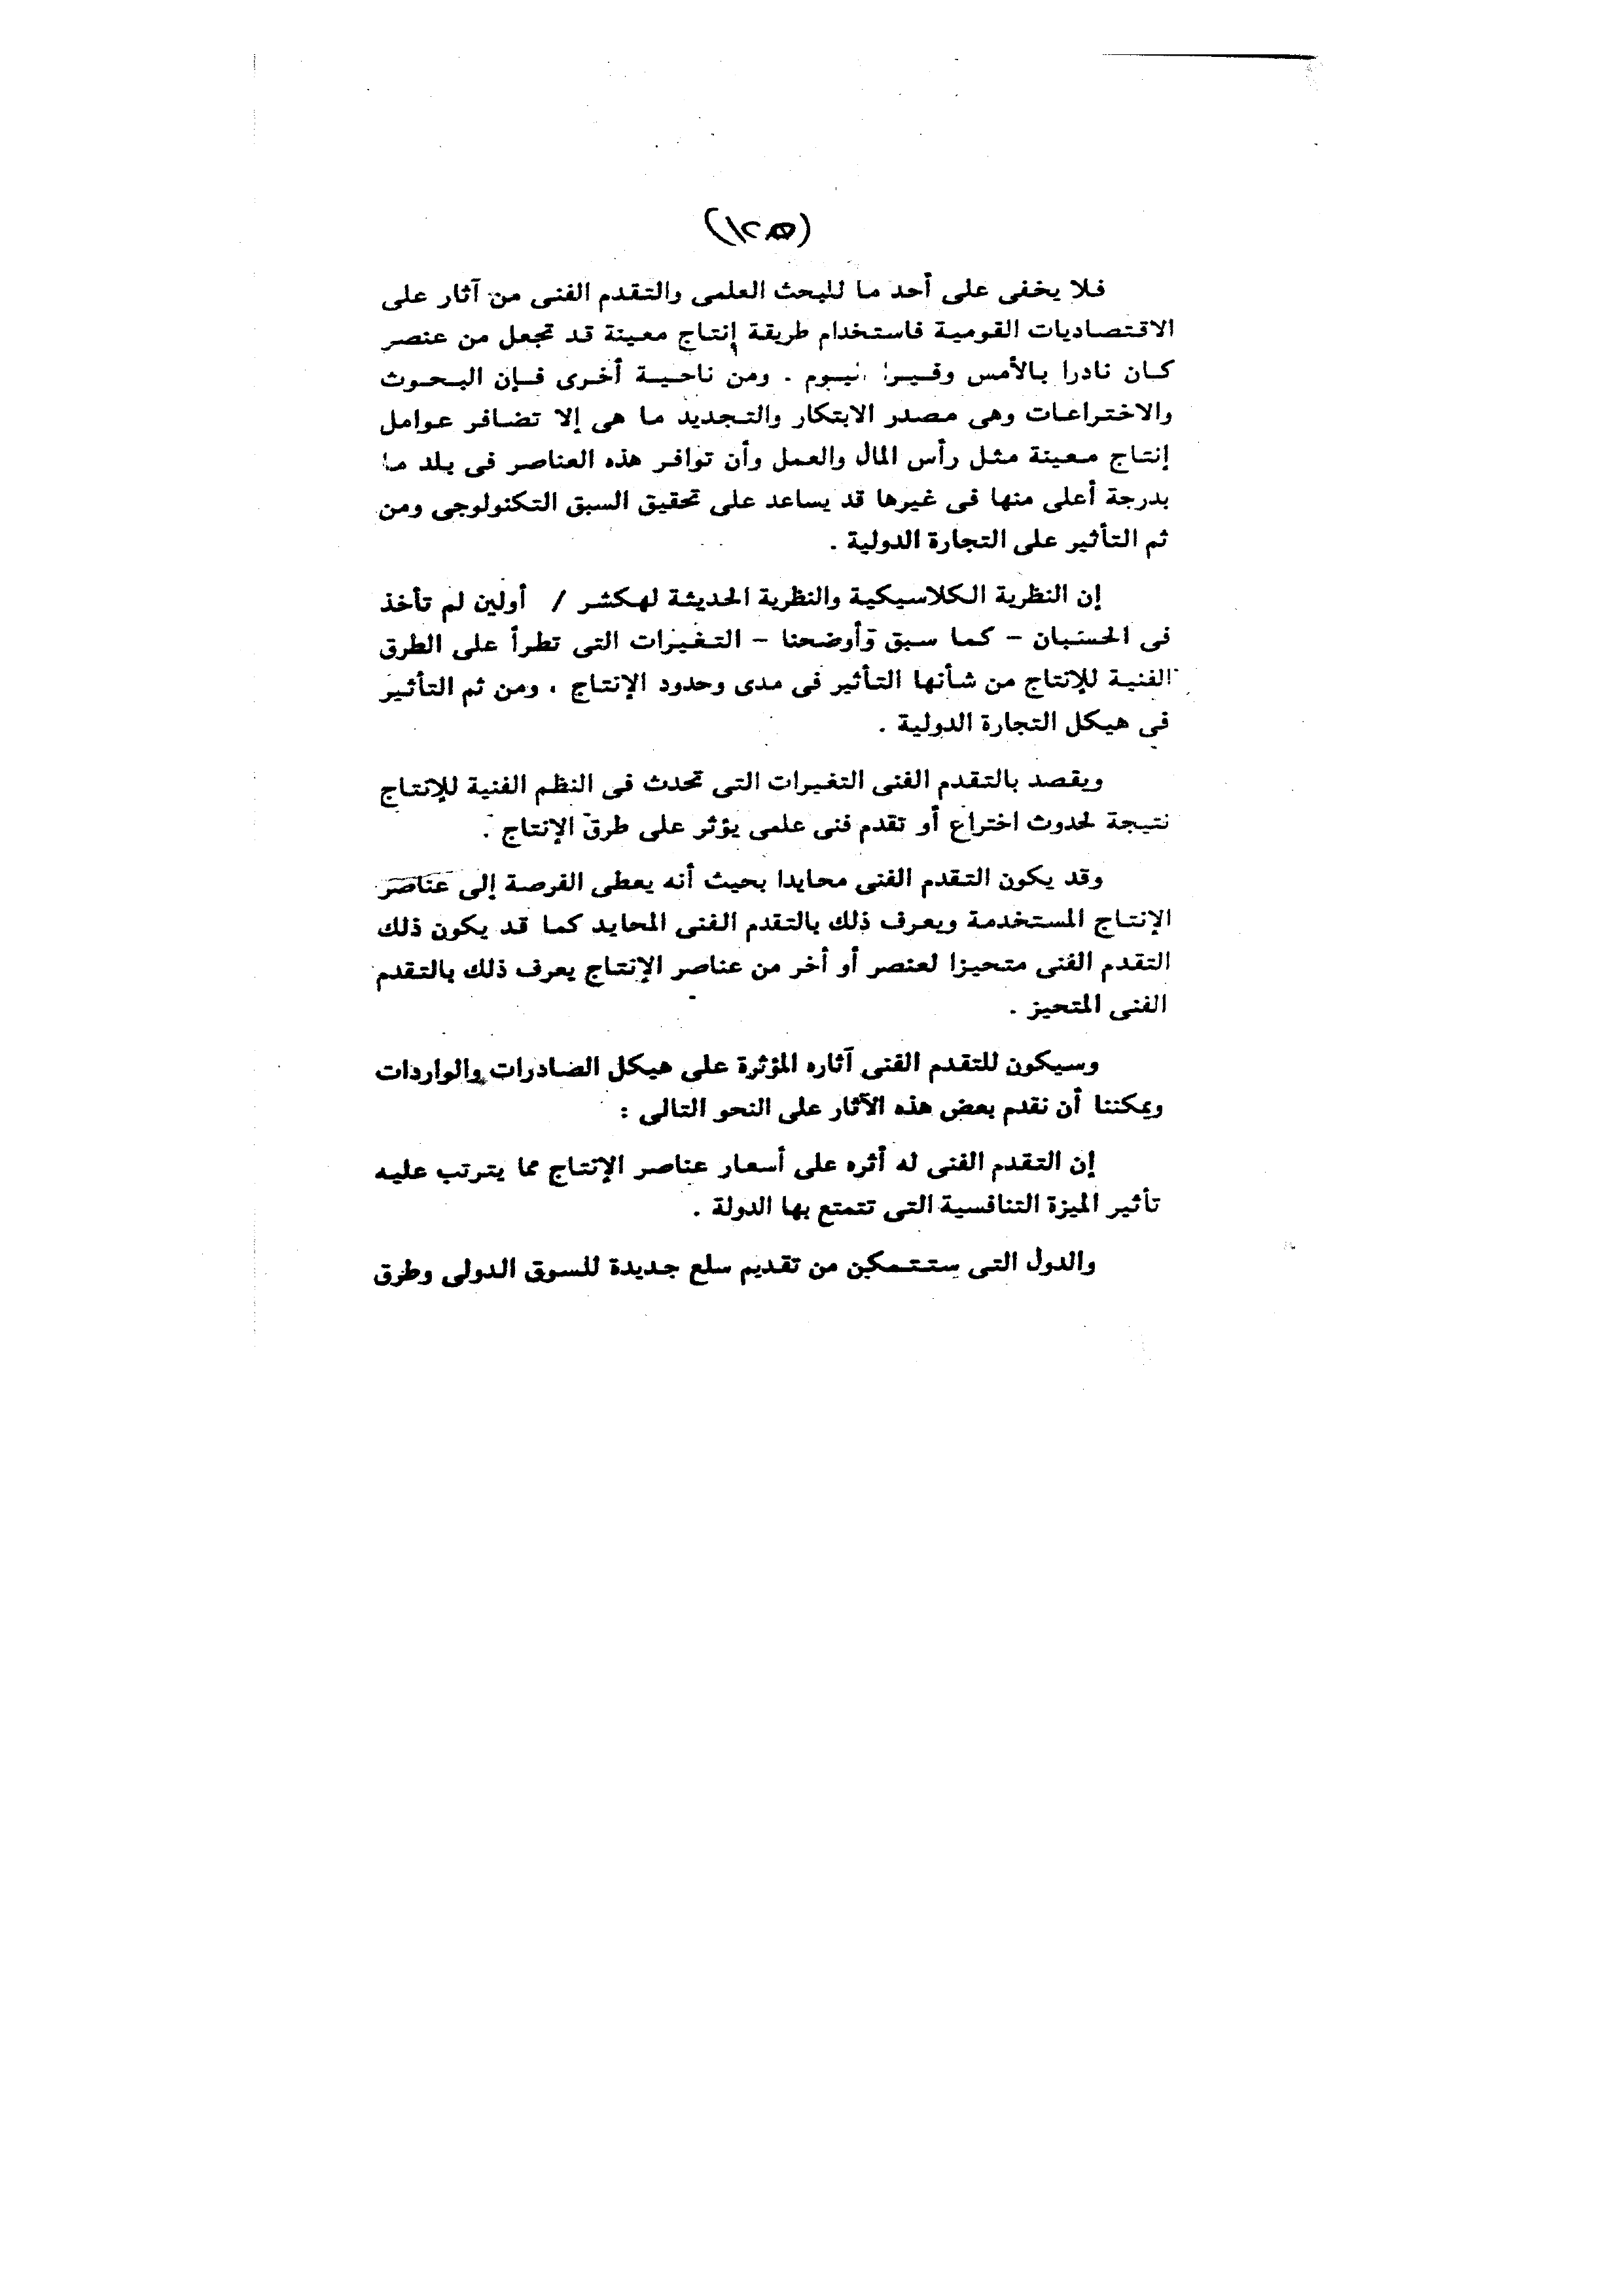 فلا يخفى على أحد ما للبحث العلمى والتقدم الفنى من آثار على
الاقتصاديات القومية فاستخدام طريقة إنتاج معينة قد تجعل من عنصر
كان نادرا بالأمس وفيرا اليوم . ومن ناحية أخرى فإن البحوث
والاختراعات وهى مصدر الابتكار والتجديد ما هى إلا تضافر عوامل
إنتاج معينة مثل رأس المال والعمل وأن توافر هذه العناصر فى بلد ما
بدرجة أعلى منها فى غيرها قد يساعد على تحقيق السبق التكنولوجى ومن
ثم التأثير على التجارة الدولية .
إن النظرية الكلاسيكية والنظرية الحديثة لهكشر / أولين لم تأخذ
فى الحسبان - كما سبق وأوضحنا - التغيرات التى تطرأ على الطرق
الفنية للإنتاج من شأنها التأثير فى مدى وحدود الإنتاج ، ومن ثم التأثير
فى هيكل التجارة الدولية .
ويقصد بالتقدم الفنى التغيرات التى تحدث فى النظم الفنية للإنتاج
نتيجة لحدوث اختراع أو تقدم فنى علمى يؤثر على طرق الإنتاج .
وقد يكون التقدم الفنى محايدا بحيث أنه يعطى الفرصة إلى عناصر
الإنتاج المستخدمة ويعرف ذلك بالتقدم الفنى المحايد كما قد يكون ذلك
التقدم الفنى متحيزا لعنصر أو أخر من عناصر الإنتاج يعرف ذلك بالتقدم
الفنى المتحيز .
وسيكون للتقدم الفنى آثاره المؤثرة على هيكل الصادرات والواردات
ويمكننا أن نقدم بعض هذه الآثار على النحو التالى :
إن التقدم الفنى له أثره على أسعار عناصر الإنتاج مما يترتب عليه
تأثير الميزة التنافسية التى تتمتع بها الدولة .
والدول التى ستتمكن من تقديم سلع جديدة للسوق الدولى وطرق